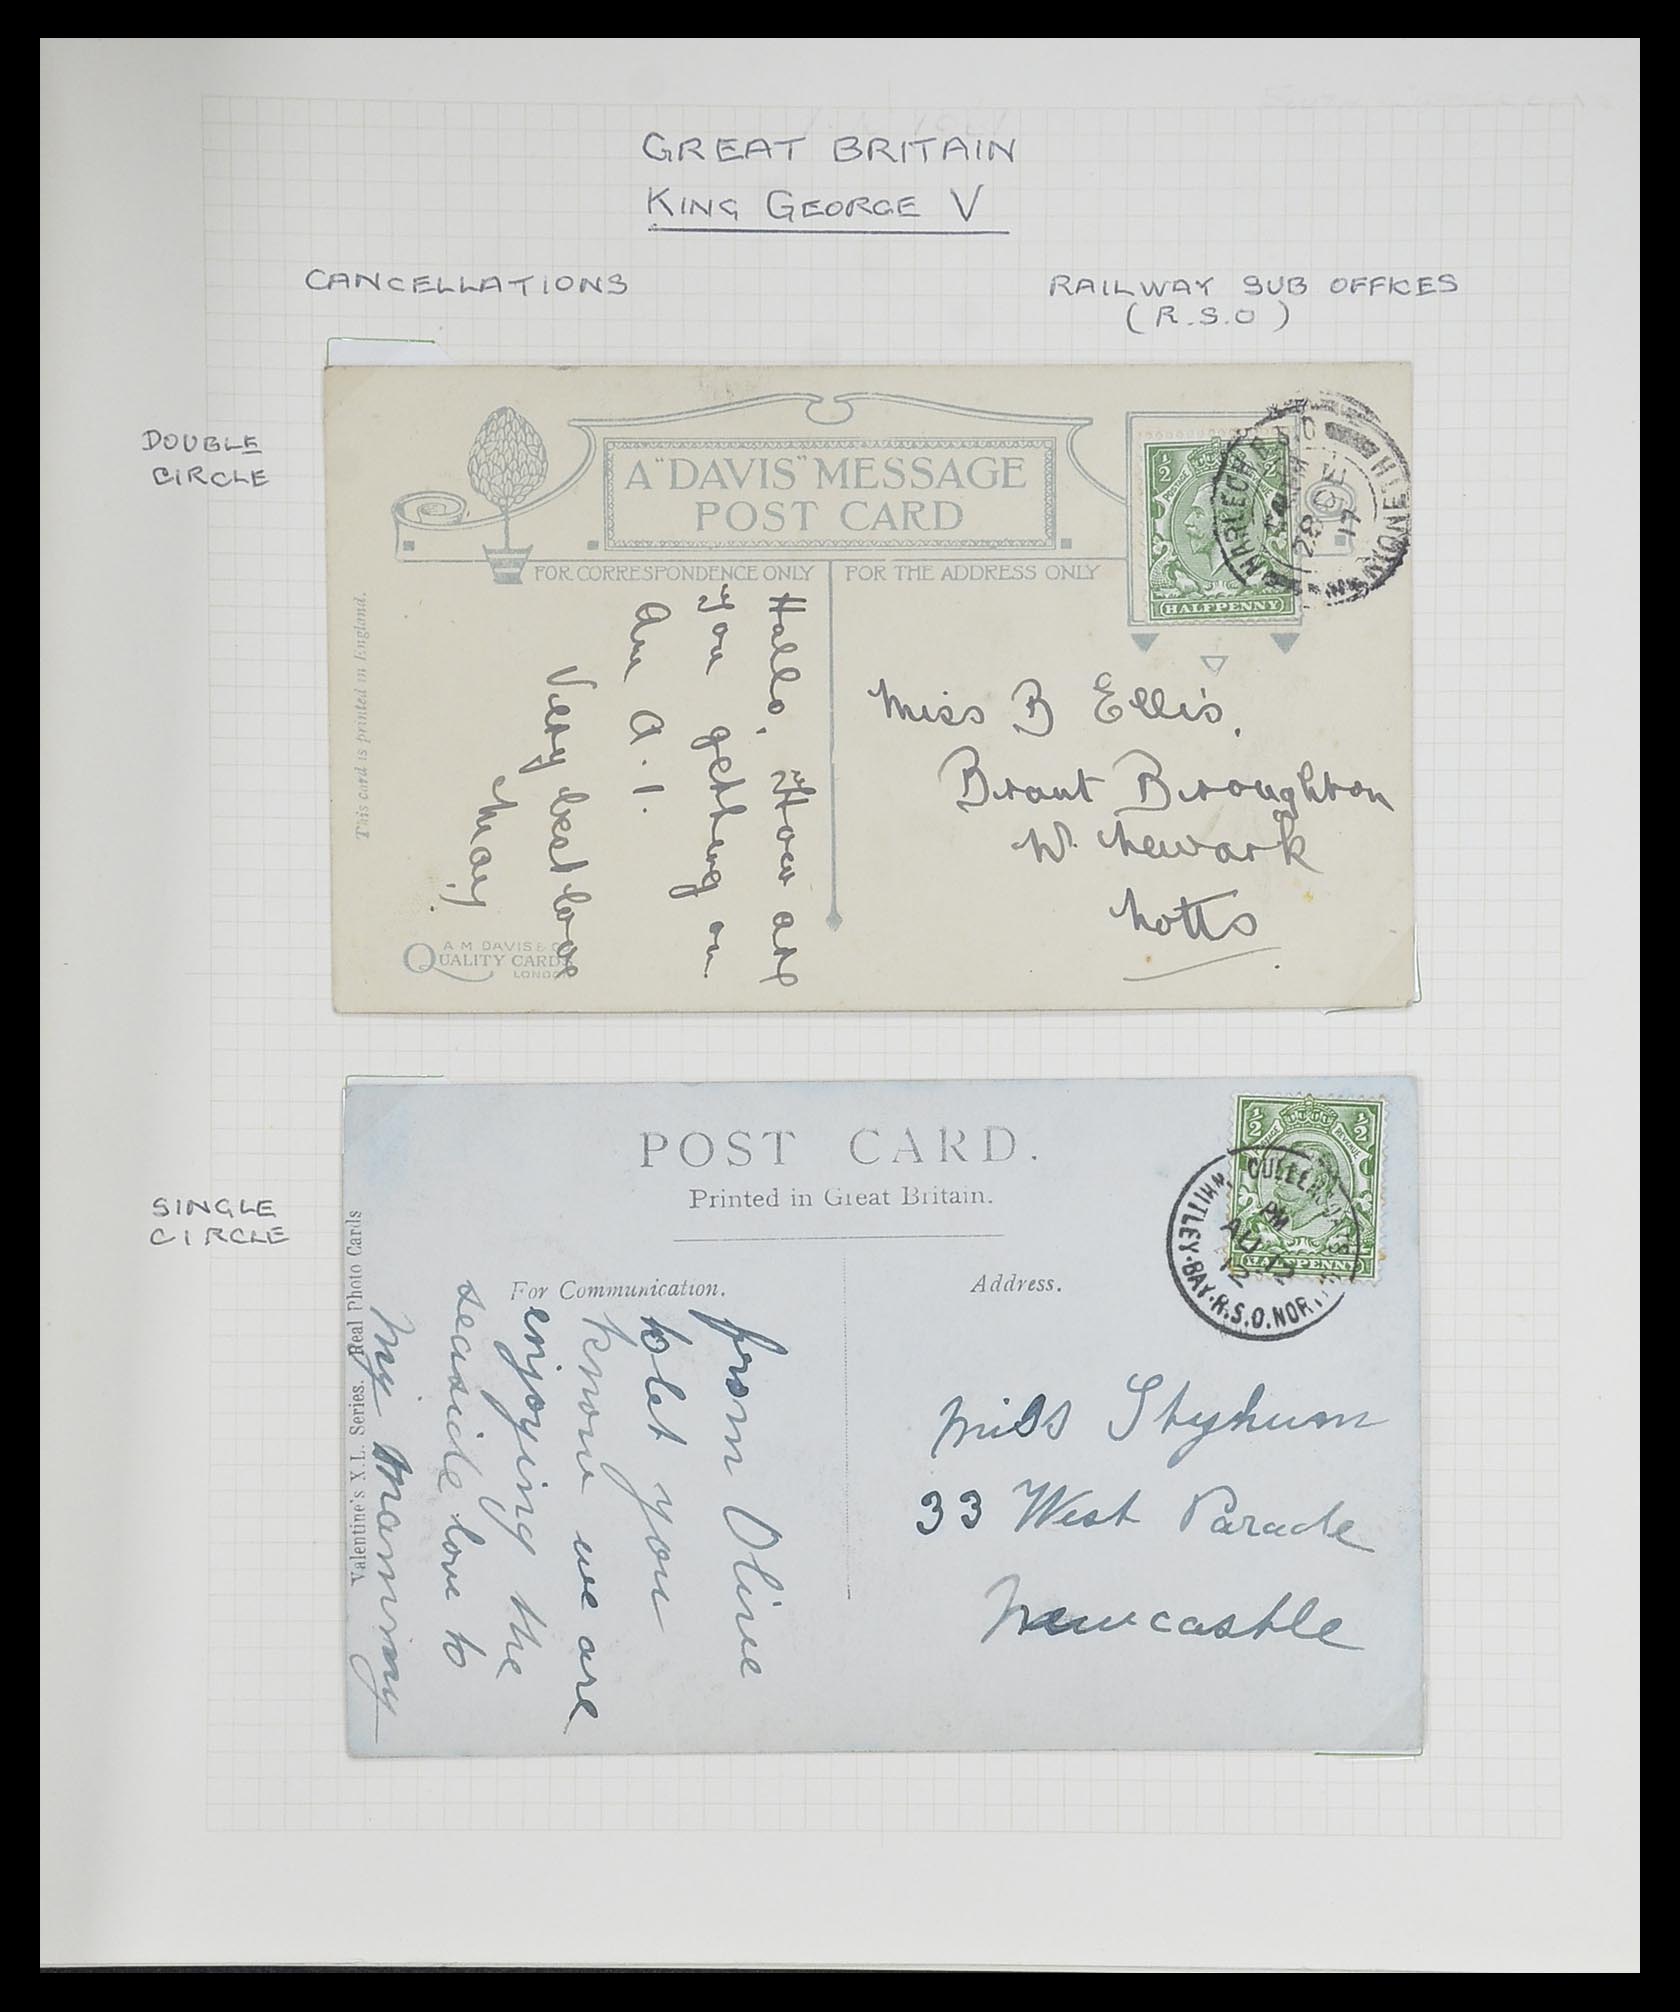 GREAT BRITAIN
KING GEORGE V
CANCELLATIONS
RAILWAY SUB OFFICES
(R.S.O)
DOUBLE
CIRCLE
A "DAVIS" MESSAGE
POST CARD
FOR CORRESPONDENCE ONLY
FOR THE ADDRESS ONLY
1/2 1/2
POSTAGE
HALFPENNY
HARLECH R.S.O
28 OC
17
MERIONETH
This card is printed in England.
Hallo, How are
you getting on.
Am A.1.
Very best love
May.
Miss B Ellis.
Brant Broughton
Nr. Newark
Notts
A M DAVIS & Co
QUALITY CARDS
LONDON
SINGLE
CIRCLE
POST CARD.
Printed in Great Britain.
For Communication.
Address.
1/2 1/2
POSTAGE REVENUE
HALFPENNY
CULLERCOATS
PM
AU 12
12
WHITLEY-BAY.R.S.O.
Valentine's X.L. Series. Real Photo Cards
from Olive
to let you
know we are
enjoying the
seaside love to
My Mammy
Miss Styhum
33 West Parade
Newcastle